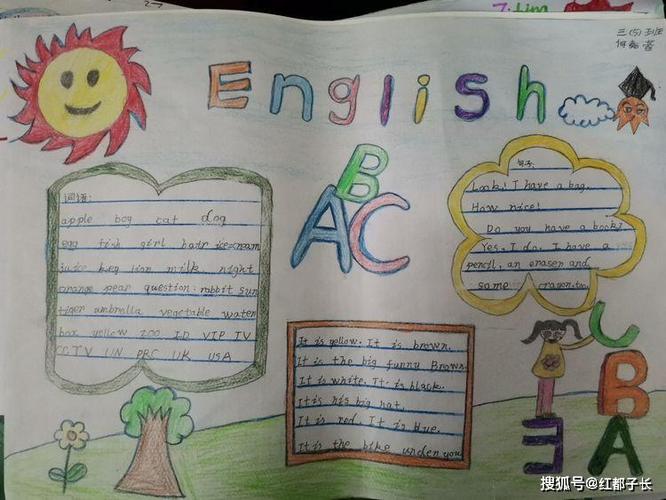 7. tim
三(5)班
English
ABC
词语:
apple boy cat dog
egg fish girl hair ice-cream
juice keg lion milk night
orange pear question rabbit sun
tiger umbrella vegetable water
box yellow zoo ID VIP TV
CCTV UN PRC UK USA
句子:
Look! I have a bag.
How nice!
Do you have a book?
Yes, I do. I have a
pencil, an eraser and
some crayon, too.
It is yellow. It is brown.
It is the big funny Brown.
It is white. It is black.
It is his big hat.
It is red. It is blue.
It is the bike under you
C
B
E A
搜狐号@红都子长